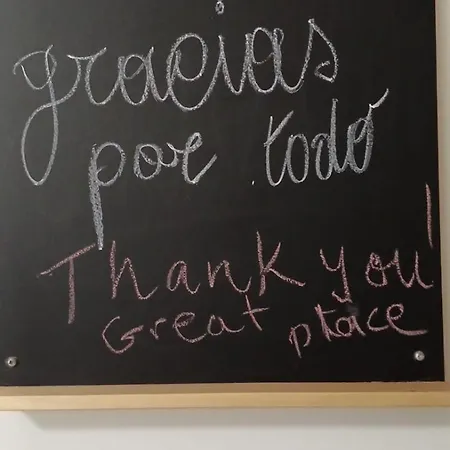 gracias
por todo
Thank you!
Great place